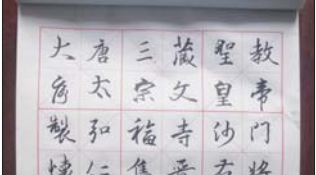 大唐三藏聖教
序太宗文皇帝
製弘福寺沙門
懷仁集晉右將